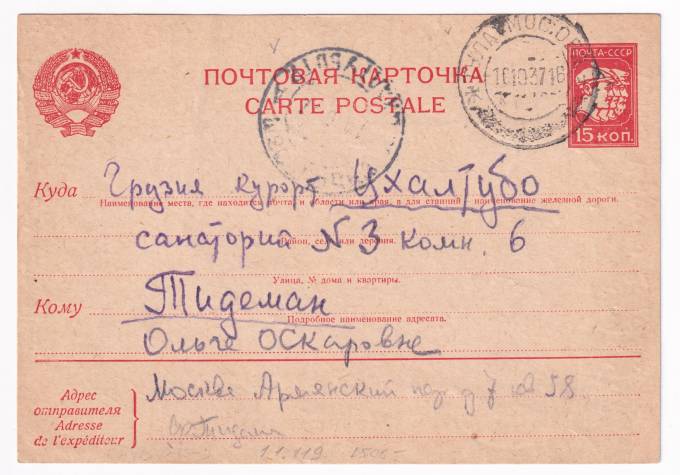 ПОЧТА-СССР
ПОЧТОВАЯ КАРТОЧКА
CARTE POSTALE
15 КОП.
МОСКВА
161037 16
Куда Грузия курорт Цхалтубо
Наименование места, где находится почта, и области или края, а для станций наименование железной дороги.
санаторий №3 комн. 6
Район, село или деревня.
Улица, № дома и квартиры.
Кому Тидеман
Подробное наименование адресата.
Ольге Оскаровне
Адрес отправителя
Adresse de l'expéditeur
Москва Армянский пер. д 7 кв 58
1.1.119. 1500-